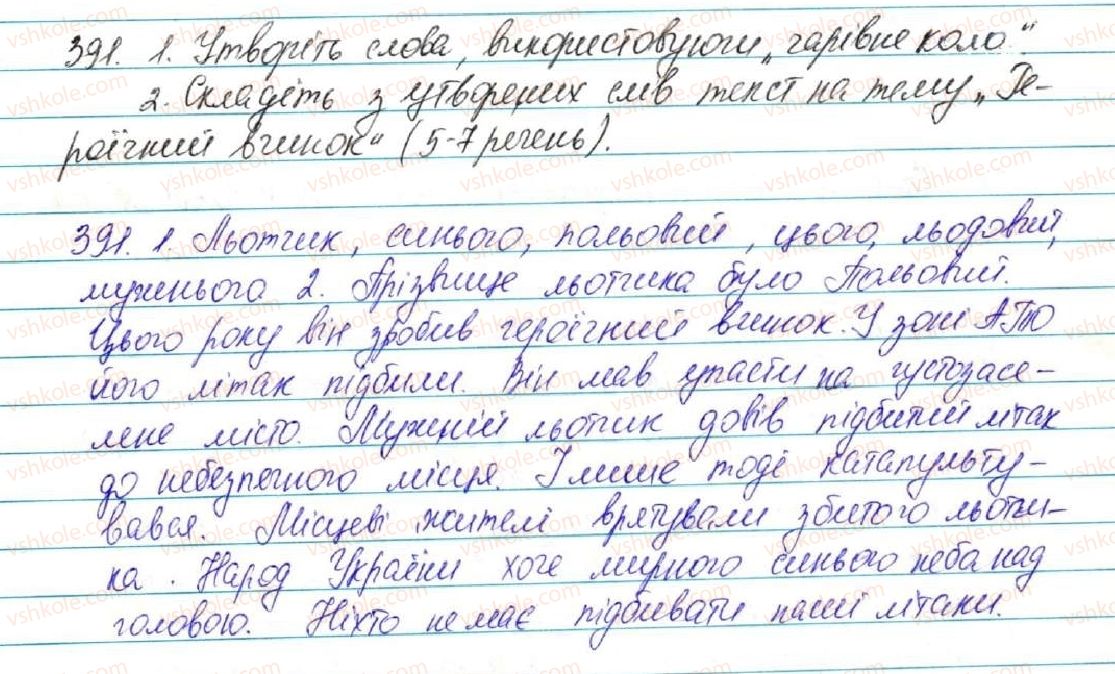 391. 1. Утворіть слова, використовуючи „чарівне коло“.
2. Складіть з утворених слів текст на тему „Ге-
роїчний вчинок“ (5-7 речень).
391. 1. Льотчик, синього, польовий, цього, льодовий,
мужнього 2. Прізвище льотчика було Польовий.
Цього року він зробив героїчний вчинок. У зоні АТО
його літак підбили. Він мав упасти на густозасе-
лене місто. Мужній льотчик довів підбитий літак
до небезпечного місця. І лише тоді катапульту-
вався. Місцеві жителі врятували збитого льотчи-
ка. Народ України хоче мирного синього неба над
головою. Ніхто не має підбивати наші літаки.